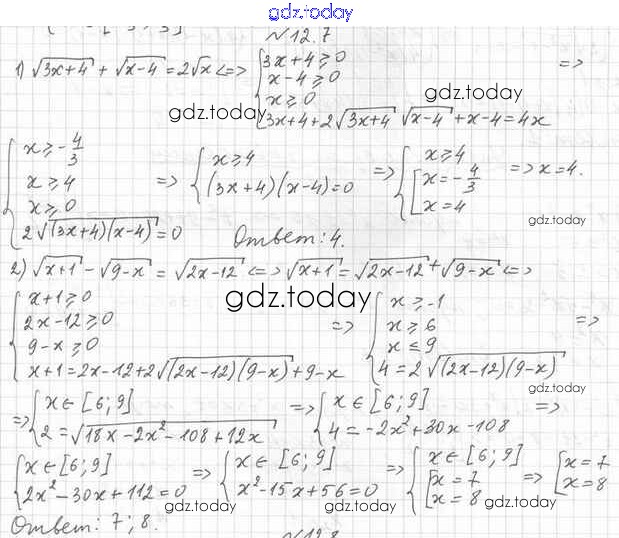 gdz.today
№12.7
1) √(3x+4) + √(x-4) = 2√x <=> { 3x+4 ≥ 0 =>
x-4 ≥ 0
gdz.today
x ≥ 0
gdz.today
3x+4+2√(3x+4) √(x-4) + x-4 = 4x
{ x ≥ -4/3
x ≥ 4
x ≥ 0
2√((3x+4)(x-4)) = 0
=> { x ≥ 4
(3x+4)(x-4) = 0
=> { x ≥ 4
[ x = -4/3
x = 4
=> x = 4.
gdz.today
Ответ: 4.
2) √(x+1) - √(9-x) = √(2x-12) <=> √(x+1) = √(2x-12) + √(9-x) <=>
gdz.today
{ x+1 ≥ 0
2x-12 ≥ 0
9-x ≥ 0
x+1 = 2x-12+2√((2x-12)(9-x)) + 9-x
=> { x ≥ -1
x ≥ 6
x ≤ 9
4 = 2√((2x-12)(9-x))
=>
gdz.today
=> { x ∈ [6; 9]
2 = √(18x-2x²-108+12x)
=> { x ∈ [6; 9]
4 = -2x²+30x-108
=>
{ x ∈ [6; 9]
2x²-30x+112 = 0
=> { x ∈ [6; 9]
x²-15x+56 = 0
=> { x ∈ [6; 9]
[ x = 7
x = 8
=> [ x = 7
x = 8
gdz.today
gdz.today
gdz.today
Ответ: 7; 8.
№12.8